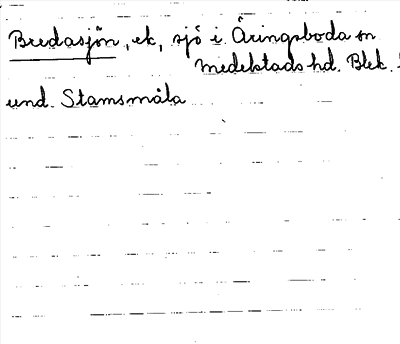 Bredasjön, ek, sjö i Åringsboda sn
Medelstads hd. Blek.
und. Stamsmåla